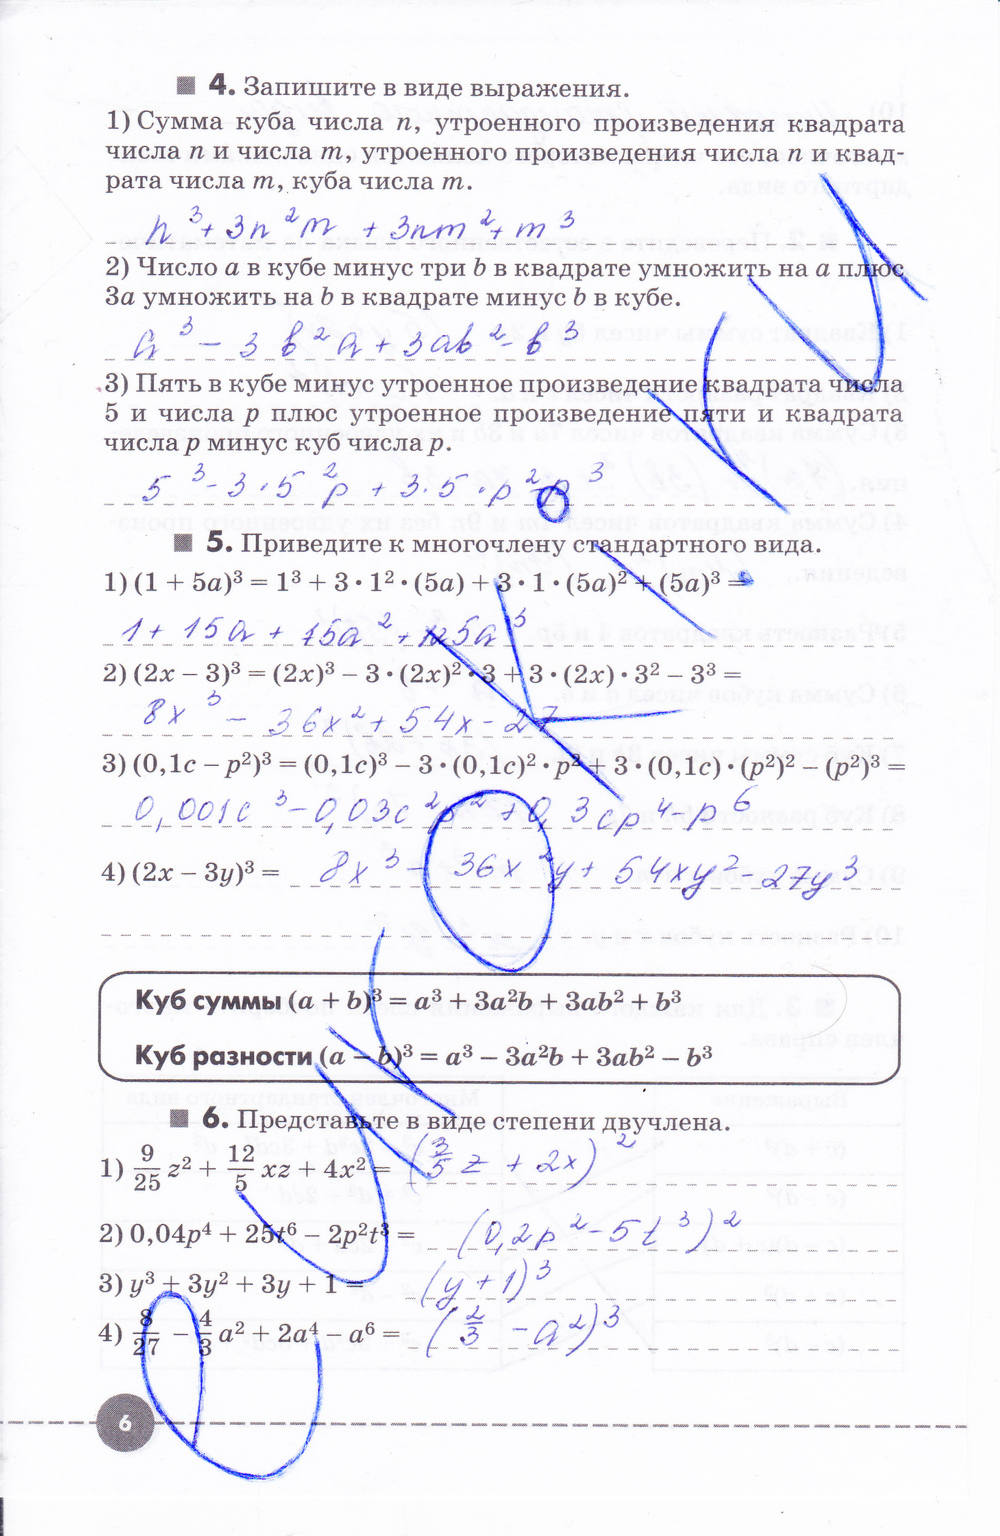 4. Запишите в виде выражения.
1) Сумма куба числа n, утроенного произведения квадрата
числа n и числа m, утроенного произведения числа n и квад-
рата числа m, куба числа m.
n³ + 3n²m + 3nm² + m³
2) Число a в кубе минус три b в квадрате умножить на a плюс
3a умножить на b в квадрате минус b в кубе.
a³ - 3b²a + 3ab² - b³
3) Пять в кубе минус утроенное произведение квадрата числа
5 и числа p плюс утроенное произведение пяти и квадрата
числа p минус куб числа p.
5³ - 3·5²p + 3·5·p² - p³
5. Приведите к многочлену стандартного вида.
1) (1 + 5a)³ = 1³ + 3 · 1² · (5a) + 3 · 1 · (5a)² + (5a)³ =
1 + 15a + 15a² + 125a³
2) (2x – 3)³ = (2x)³ – 3 · (2x)² · 3 + 3 · (2x) · 3² – 3³ =
8x³ - 36x² + 54x - 27
3) (0,1c – p²)³ = (0,1c)³ – 3 · (0,1c)² · p² + 3 · (0,1c) · (p²)² – (p²)³ =
0,001c³ - 0,03c²p² + 0,3cp⁴ - p⁶
4) (2x – 3y)³ = 8x³ - 36x²y + 54xy² - 27y³
Куб суммы (a + b)³ = a³ + 3a²b + 3ab² + b³
Куб разности (a – b)³ = a³ – 3a²b + 3ab² – b³
6. Представьте в виде степени двучлена.
1) 9/25 z² + 12/5 xz + 4x² = (3/5 z + 2x)²
2) 0,04p⁴ + 25t⁶ – 2p²t³ = (0,2p² - 5t³)²
3) y³ + 3y² + 3y + 1 = (y + 1)³
4) 8/27 – 4/3 a² + 2a⁴ – a⁶ = (2/3 - a²)³
6